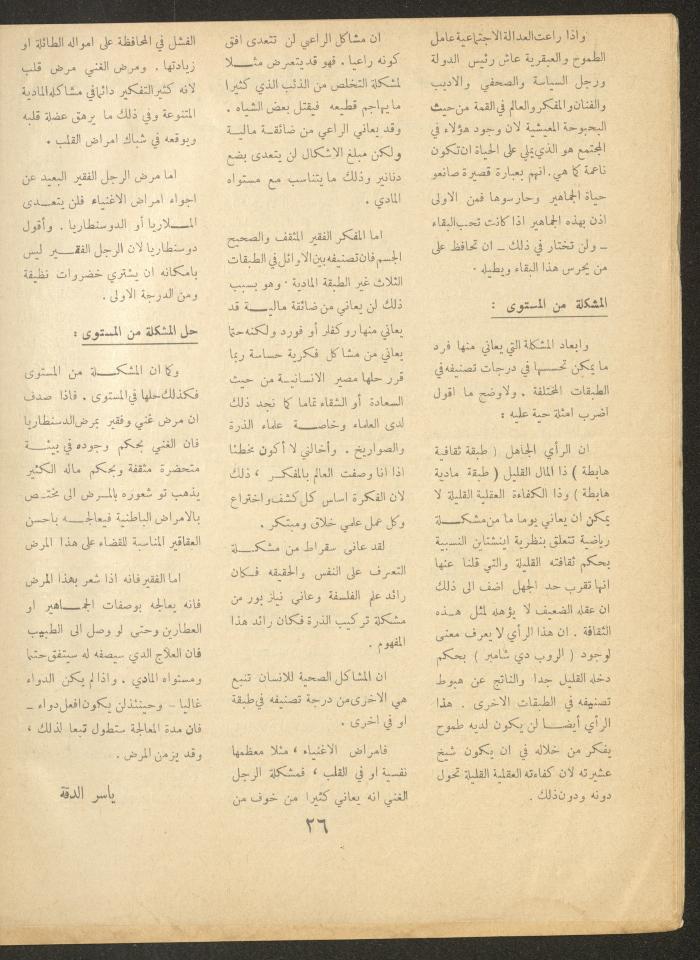 واذا راعت العدالة الاجتماعية عامل
الطموح والعبقرية عاش رئيس الدولة
ورجل السياسة والصحفي والاديب
والفنان والمفكر والعالم في القمة من حيث
البحبوحة المعيشية لان وجود هؤلاء في
المجتمع هو الذي يملي على الحياة ان تكون
ناعمة كما هي. انهم بعبارة قصيرة صانعو
حياة الجماهير وحارسوها فمن الاولى
اذن بهذه الجماهير اذا كانت تحب البقاء
ـ ولن تختار في ذلك ـ ان تحافظ على
من يحرس هذا البقاء ويطيله .
المشكلة من المستوى :
وابعاد المشكلة التي يعاني منها فرد
ما يمكن تحسسها في درجات تصنيفه في
الطبقات المختلفة . ولاوضح ما اقول
اضرب امثلة حية عليه :
ان الرأي الجاهل ( طبقة ثقافية
هابطة ) ذا المال القليل ( طبقة مادية
هابطة ) وذا الكفاءة العقلية القليلة لا
يمكن ان يعاني يوما ما من مشكلة
رياضية تتعلق بنظرية اينشتاين النسبية
بحكم ثقافته القليلة والتي قلنا عنها
انها تقرب حد الجهل اضف الى ذلك
ان عقله الضعيف لا يؤهله لمثل هذه
الثقافة . ان هذا الرأي لا يعرف معنى
لوجود ( الروب دي شامبر ) بحكم
دخله القليل جدا والناتج عن هبوط
تصنيفه في الطبقات الاخرى . هذا
الرأي أيضا لن يكون لديه طموح
يفكر من خلاله في ان يكون شيخ
عشيرته لان كفاءته العقلية القليلة تحول
دونه ودون ذلك .
ان مشاكل الراعي لن تتعدى افق
كونه راعيا . فهو قد يتعرض مثلا
لمشكلة التخلص من الذئب الذي كثيرا
ما يهاجم قطيعه فيقتل بعض الشياه .
وقد يعاني الراعي من ضائقة مالية
ولكن مبلغ الاشكال لن يتعدى بضع
دنانير وذلك ما يتناسب مع مستواه
المادي .
اما المفكر الفقير المثقف والصحيح
الجسم فان تصنيفه بين الاوائل في الطبقات
الثلاث غير الطبقة المادية . وهو بسبب
ذلك لن يعاني من ضائقة مالية قد
يعاني منها روكفلر أو فورد ولكنه حتما
يعاني من مشاكل فكرية حساسة ربما
قرر حلها مصير الانسانية من حيث
السعادة أو الشقاء تماما كما نجد ذلك
لدى العلماء وخاصة علماء الذرة
والصواريخ . وأخالني لا أكون مخطئا
اذا انا وصفت العالم بالمفكر ، ذلك
لان الفكرة اساس كل كشف واختراع
وكل عمل علمي خلاق ومبتكر .
لقد عانى سقراط من مشكلة
التعرف على النفس والحقيقه فكان
رائد علم الفلسفة وعاني نيلز بور من
مشكلة تركيب الذرة فكان رائد هذا
المفهوم .
ان المشاكل الصحية للانسان تنبع
هي الاخرى من درجة تصنيفه في طبقة
او في اخرى .
فامراض الاغنياء ، مثلا معظمها
نفسية او في القلب ، فمشكلة الرجل
الغني انه يعاني كثيرا من خوف من
الفشل في المحافظة على امواله الطائلة او
زيادتها . ومرض الغني مرض قلب
لانه كثير التفكير دائما في مشاكله المادية
المتنوعة وفي ذلك ما يرهق عضلة قلبه
ويوقعه في شباك امراض القلب .
اما مرض الرجل الفقير البعيد عن
اجواء امراض الاغنياء فلن يتعدى
الملاريا أو الدوسنطاريا . وأقول
دوسنطاريا لان الرجل الفقير ليس
بامكانه ان يشتري خضروات نظيفة
ومن الدرجة الاولى .
حل المشكلة من المستوى :
وكما ان المشكلة من المستوى
فكذلك حلها في المستوى . فاذا صدف
ان مرض غني وفقير بمرض الدسنطاريا
فان الغني بحكم وجوده في بيئة
متحضرة مثقفة وبحكم ماله الكثير
يذهب تو شعوره بالمرض الى مختص
بالامراض الباطنية فيعالجه باحسن
العقاقير المناسبة للقضاء على هذا المرض
اما الفقير فانه اذا شعر بهذا المرض
فانه يعالجه بوصفات الجماهير او
العطارين وحتى لو وصل الى الطبيب
فان العلاج الذي سيصفه له سيتفق حتما
ومستواه المادي . واذا لم يكن الدواء
غاليا ـ وحينئذ لن يكون افعل دواء ـ
فان مدة المعالجة ستطول تبعا لذلك ،
وقد يزمن المرض .
ياسر الدقة
٢٦